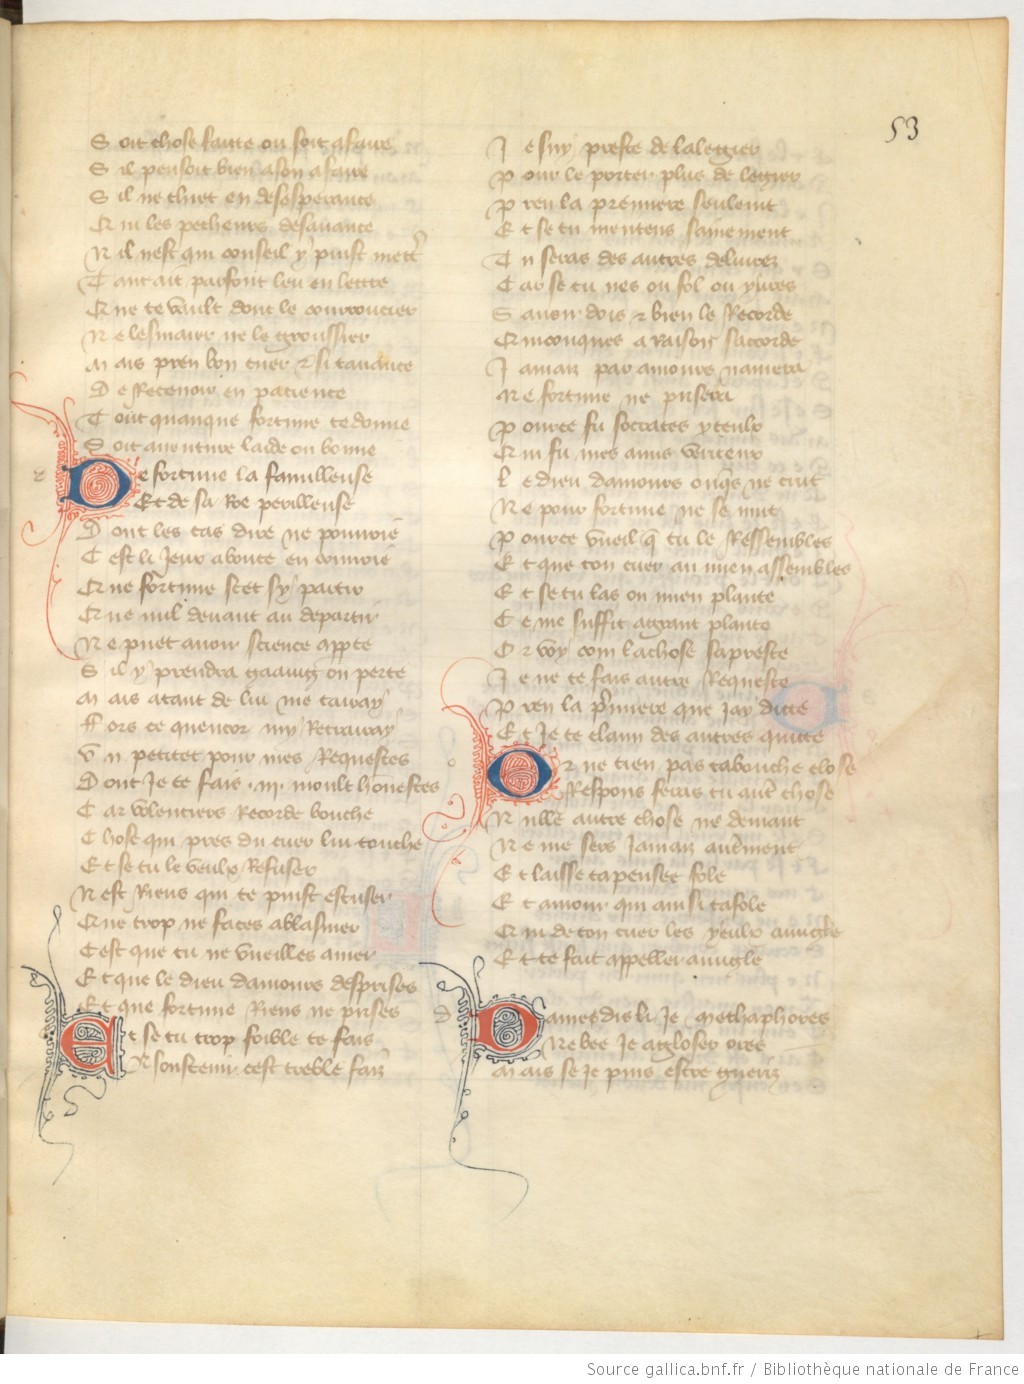 53
Soit chose faite ou soit a faire
Sil pensoit bien a son afaire
Sil ne chiet en desesperance
Qui les pecheurs desavance
Nil nest qui conseil y puist mettre
Tant ait parfont leu en lettre
Que te vault dont le courroucier
Ne lesmaier ne le groussier
Mais pren bon cuer et si tavance
De Recevoir en pacience
Tout quanque fortune te donne
Soit aventure laide ou bonne
De fortune la
Et de sa Roe perilleuse
Dont les cas dire ne pourroie
Cest li Jeux aboute en conroie
Que fortune scet sy partir
Que nul devant au departir
Ne puet avoir science appte
Sil y prendra gaaing ou perte
Mais atant de lui me tairay
Fors ce quencor my Retrairay
Un petitet pour mes Requestes
Dont Je te fais .iii. moult honnestes
Car volentiers Recorde bouche
Chose qui pres du cuer lui touche
Et se tu le veulx Refuser
Nest Riens qui te puist escuser
Que trop ne faces a blasmer
Cest que tu ne vueilles amer
Et que le dieu damours desprises
Et que fortune Riens ne prises
e
Et se tu trop foible te fais
A soustenir cest treble faiz
Je suy preste de lalegier
Pour le porter plus de legier
Pren la premiere seulemt
Et se tu mentens sainement
Tu seras des autres delivrez
Car se tu nes ou fol ou yvres
Savoir dois et bien le Recorde
Quiconques a Raison saccorde
Jamaiz par amours namera
Ne fortune ne prisera
Pour ce fu socrates yceulx
Qui fu mes amis
Le dieu damours onqs ne cremt
Ne pour fortune ne se mut
Pour ce vueil q tu le Ressembles
Et que ton cuer au mien assembles
Et se tu las ou mien plante
Ce me suffit a grant plante
Or voy com la chose sapreste
Je ne te fais autre Requeste
Pren la pmiere que Jay ditte
Et Je te claim des autres quitte
Or ne tien pas ta bouche close
Respons feras tu autre chose
Nulle autre chose ne demant
Ne me sers Jamaiz autrement
Et laisse ta pensee fole
Et lamour qui ainsi tafole
Qui de ton cuer les yeulx avugle
Et te fait appeller avugle
d
Dames dis li Je methaphores
Ne bee Je a gloser ores
Mais se Je puis estre gueriz
Source gallica.bnf.fr / Bibliothèque nationale de France